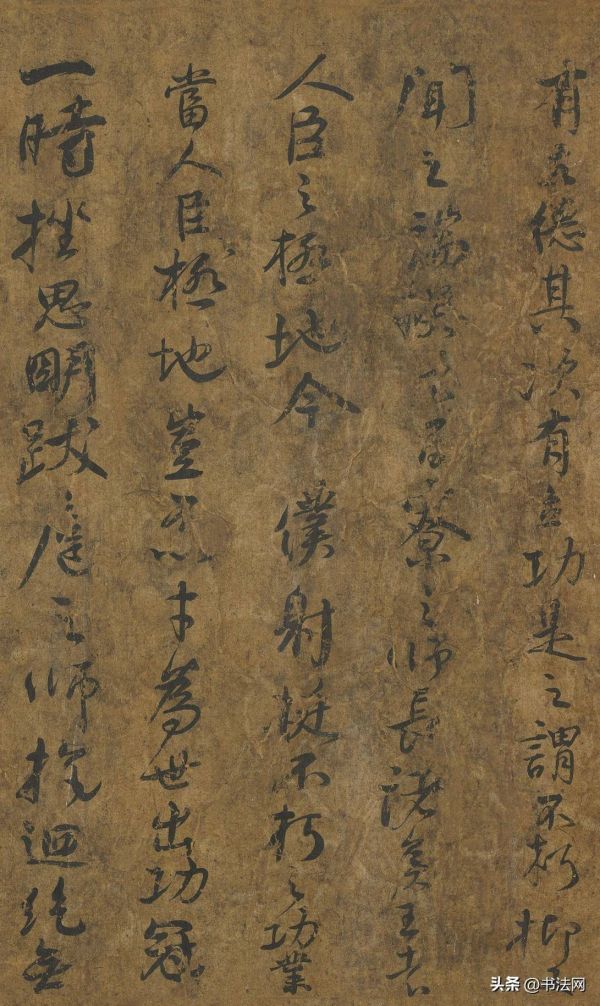 有立德其次有立功是之謂不朽抑又
聞之端揆者百寮之師長諸侯王者
人臣之極地今僕射挺不朽之功業
當人臣極地豈不以才為世出功冠
一時挫思明跋扈之師抗迴紇無
头条 @书法网